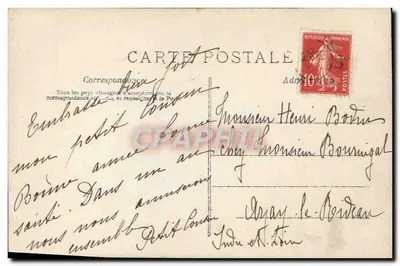 CARTE POSTALE
Correspondance
Tous les pays étrangers n'acceptent pas la
correspondance se renseigner à la Poste
Embrasse bien fort
mon petit cousin
Bonne année bonne
santé. Dans un an
nous nous amuserons
ensemble
Petit Cousin
REPUBLIQUE FRANÇAISE
10c
POSTES
Monsieur Henri Bodin
chez Monsieur Bourrigal
Azay-le-Rideau
Indre et Loire
CPAPHIL